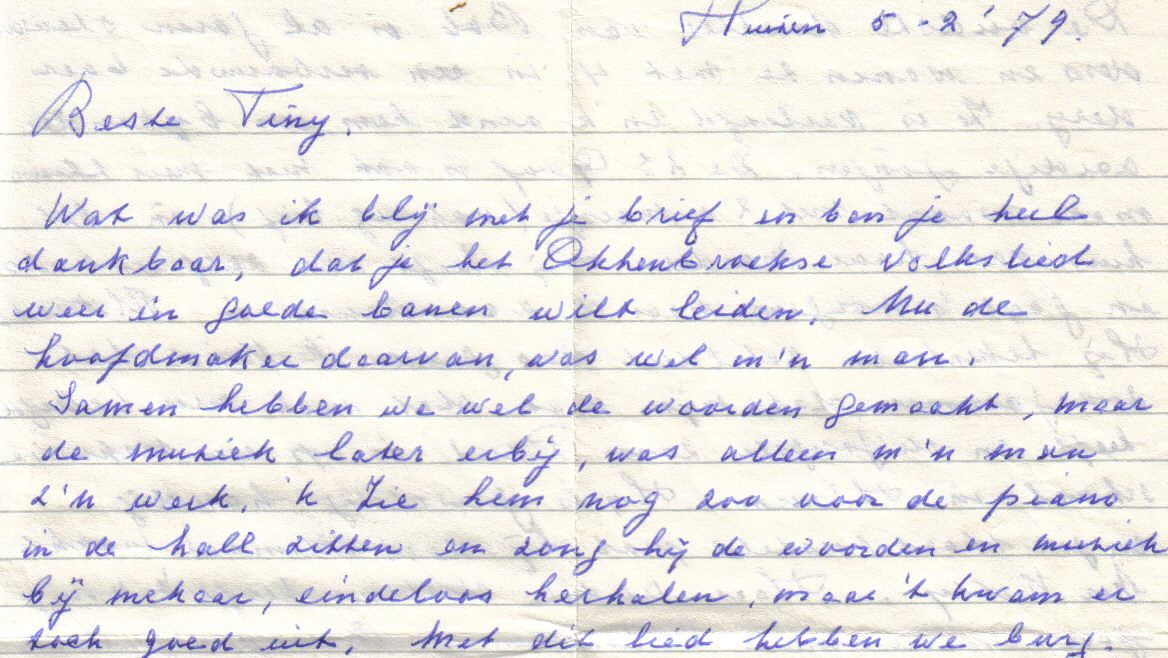 Huizen 5-2-'79.
Beste Tiny,
Wat was ik blij met je brief en ben je heel
dankbaar, dat je het Okkenbroekse volkslied
weer in goede banen wilt leiden. Nu de
hoofdmaker daarvan, was wel m'n man.
Samen hebben we wel de woorden gemaakt, maar
de muziek later erbij, was alleen m'n man
z'n werk. 'k Zie hem nog zoo voor de piano
in de hall zitten en zong hij de woorden en muziek
bij mekaar, eindeloos herhalen, maar 't kwam er
toch goed uit. Met dit lied hebben we burg.